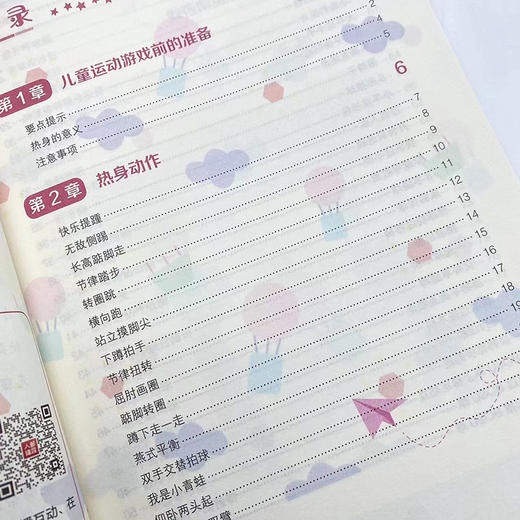 录
第1章 儿童运动游戏前的准备
要点提示 2
热身的意义 4
注意事项 5
第2章 热身动作 6
快乐提踵 7
无敌侧踢 8
长高踮脚走 9
节律踏步 10
转圈跳 11
横向跑 12
站立摸脚尖 13
下蹲拍手 14
节律扭转 15
屈肘画圈 16
踮脚转圈 17
蹲下走一走 18
燕式平衡 19
双手交替拍球
我是小青蛙
仰卧两头起
双臂
互动、在